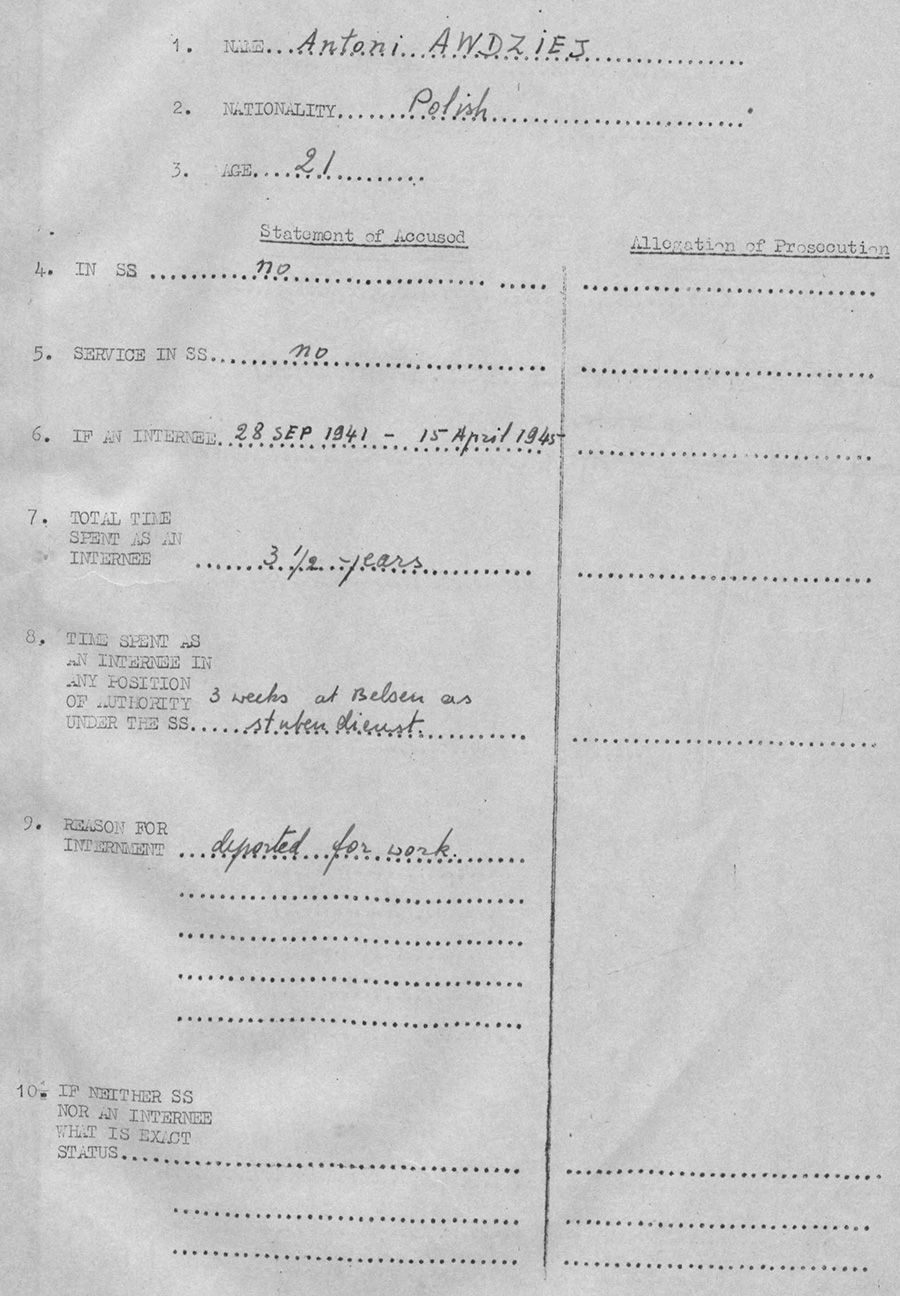 1. NAME...Antoni AWDZIEJ
2. NATIONALITY......Polish
3. AGE....21
Statement of Accused
Allegation of Prosecution
4. IN SS ..........no
5. SERVICE IN SS......no
6. IF AN INTERNEE. 28 SEP 1941 - 15 April 1945
7. TOTAL TIME
SPENT AS AN
INTERNEE ......3 1/2 years
8. TIME SPENT AS
AN INTERNEE IN
ANY POSITION
OF AUTHORITY 3 weeks at Belsen as
UNDER THE SS.....stubendienst.
9. REASON FOR
INTERNMENT ...deported for work.
10. IF NEITHER SS
NOR AN INTERNEE
WHAT IS EXACT
STATUS..